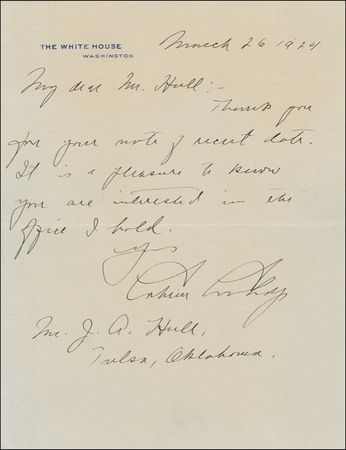 THE WHITE HOUSE
WASHINGTON
March 26 1924
My dear Mr. Hull:-
Thank you
for your note of recent date.
It is a pleasure to know
you are interested in the
office I hold.
Yrs
Calvin Coolidge
Mr. J. A. Hull,
Tulsa, Oklahoma.